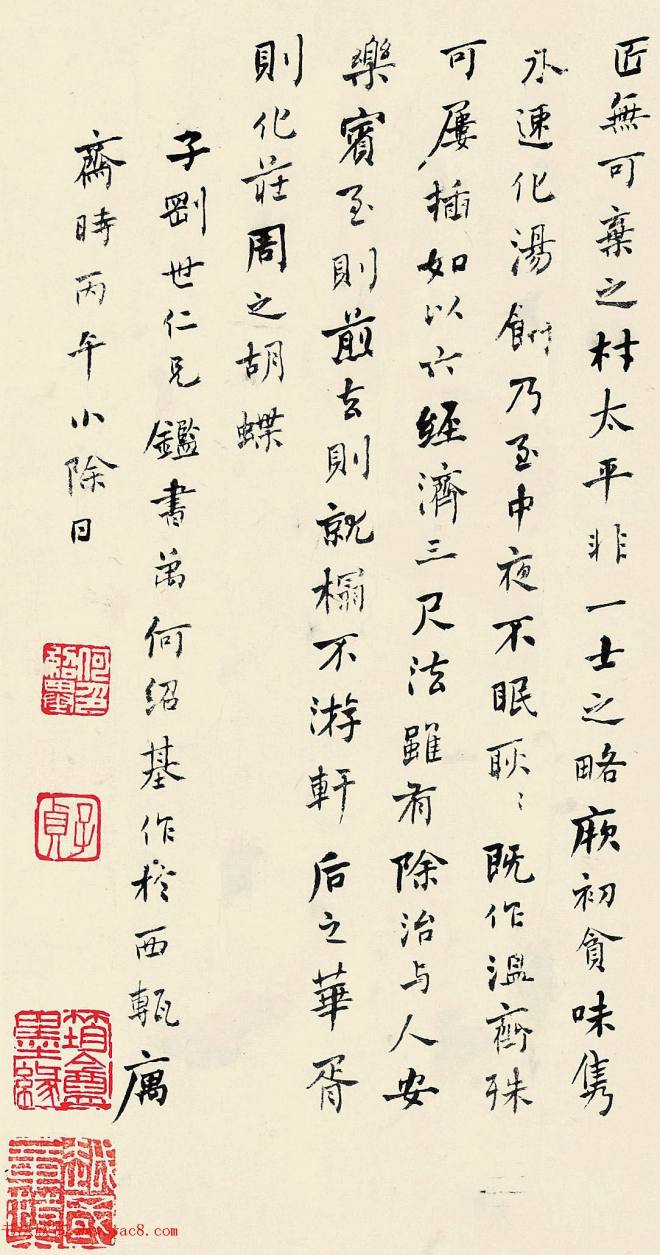 匠無可棄之材太平非一士之略厥初貪味雋
永速化湯餅乃至中夜不眠耿〻既作溫齊殊
可屢插如以六經濟三尺法雖有除治与人安
樂賓至則煎去則就榻不游軒后之華胥
則化莊周之胡蝶
子剛世仁兄鑑書何紹基作於西甎庽
齋時丙午小除日
子貞